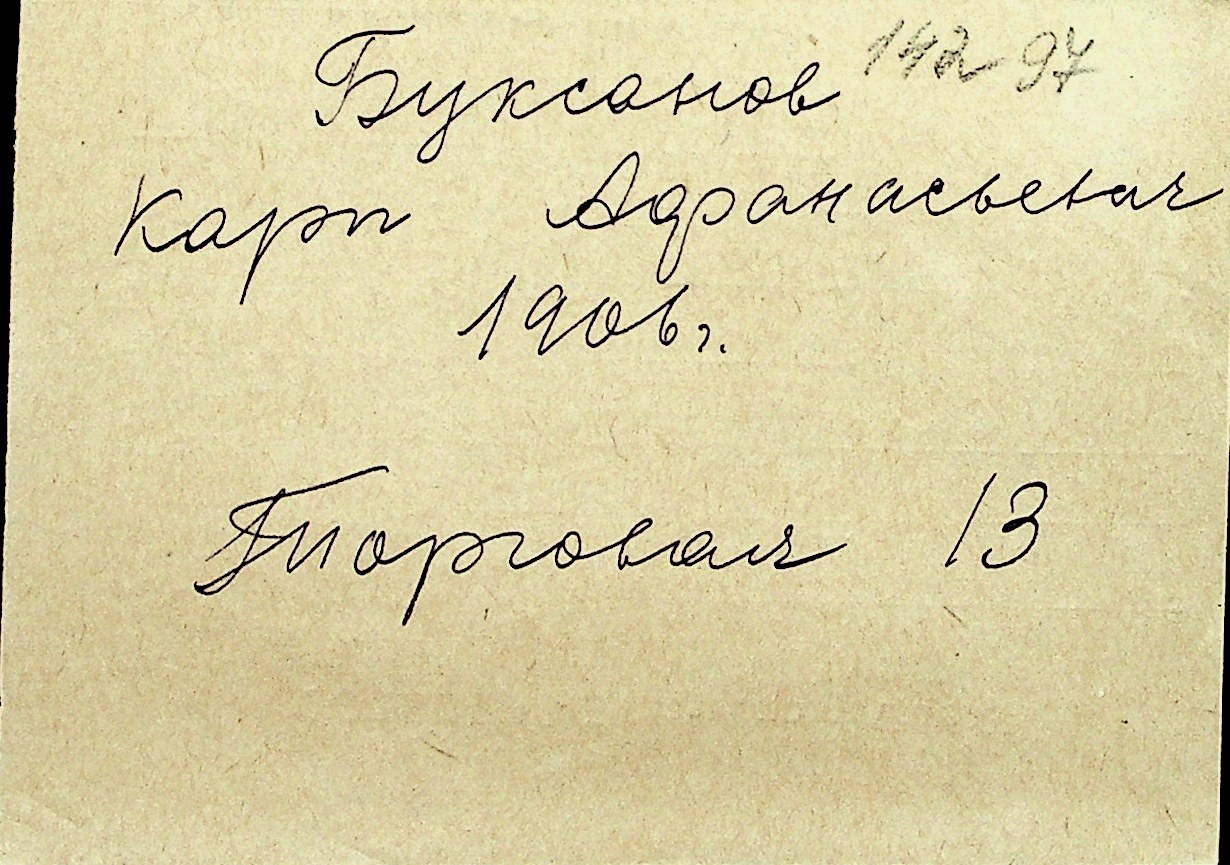 Буксанов 142-97
Карп Афанасьевич
1906г.
Торговая 13